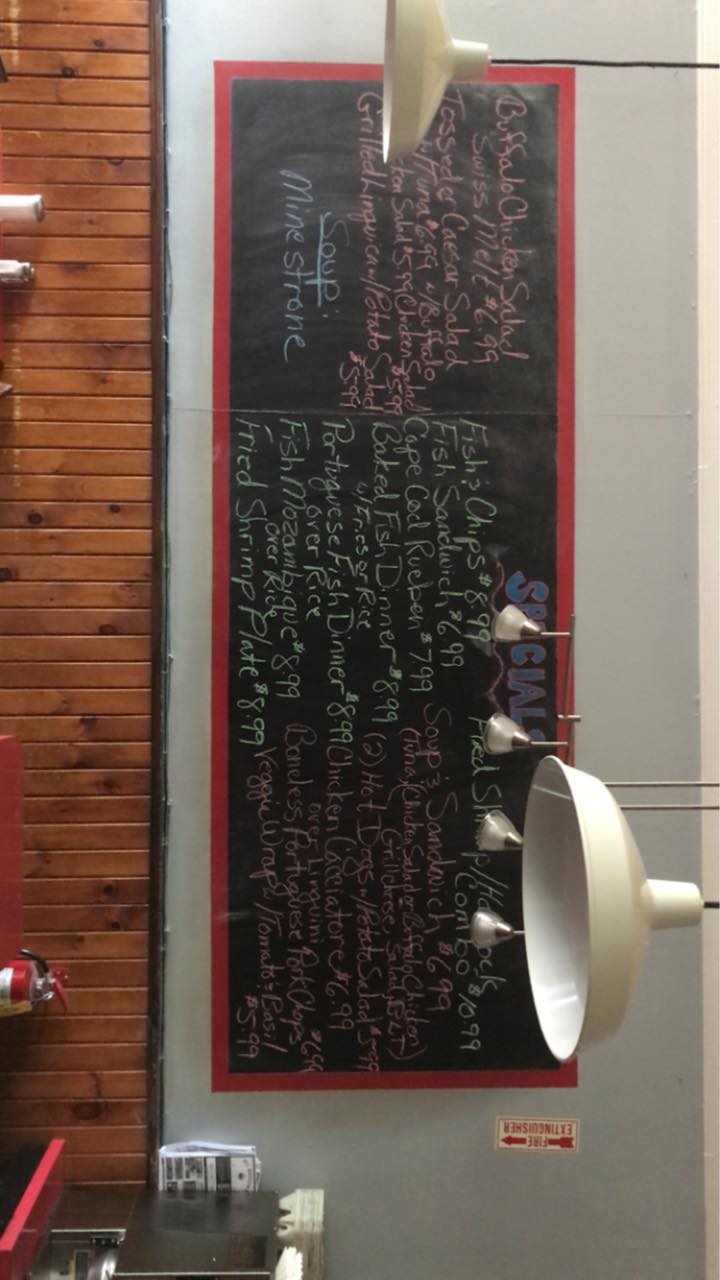 SPECIALS
Buffalo Chicken Salad
Swiss Melt $6.99
Tossed or Caesar Salad
w/Tuna 6.99 w/Buffalo
Salad 5.99 Chicken Salad $5.99
Grilled Linguica w/Potato Salad
$5.99
Soup:
Minestrone
Fish & Chips $8.99
Fish Sandwich $6.99
Cape Cod Rueben $7.99
Baked Fish Dinner $8.99
w/Fries or Rice
Portuguese Fish Dinner $8.99
over Rice
Fish Mozambique $8.99
over Rice
Fried Shrimp Plate $8.99
Combo $10.99
Soup & Sandwich $6.99
(Tuna, Chicken Salad or Buffalo Chicken)
(2) Hot Dogs w/Potato Salad $5.99
Chicken Cacciatore $6.99
over Linguini
Boneless Portuguese Pork Chops
$6.99
Veggie Wrap w/Tomato & Basil
$5.99
FIRE
EXTINGUISHER